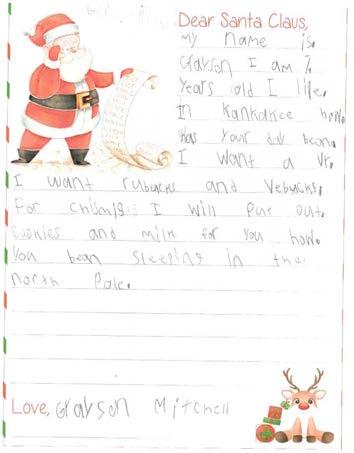 Dear Santa Claus,
My name is.
Grayson I am 7.
Years old I life.
In Kankakee how.
has your day bean.
I want a vr.
I want rubucks and Vebucks.
For chismis I will Put out.
cookies and milk for you how.
You bean sleeping in the.
north Pole.
Love, Grayson Mitchell